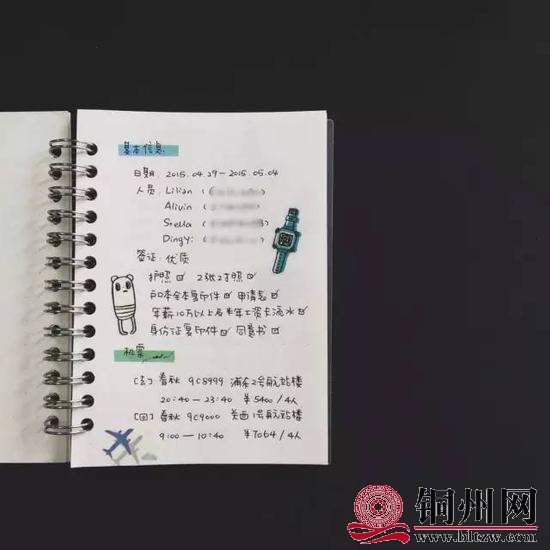 基本信息
日期 2015.04.29-2015.05.04
人员 Lilian (
Alivin (
Stella (
Dingyi (
签证:优质
护照☑ 2张2寸照☑
户口本全本复印件☑ 申请表☑
年薪10万以上后半年工资卡流水☑
身份证复印件☑ 同意书☑
机票
(去) 春秋 9C8999 浦东2号航站楼
20:40-23:40 ¥5400/4人
(回) 春秋 9C9000 关西1号航站楼
9:00-10:40 ¥7064/4人
铜州网
www.bltzw.com